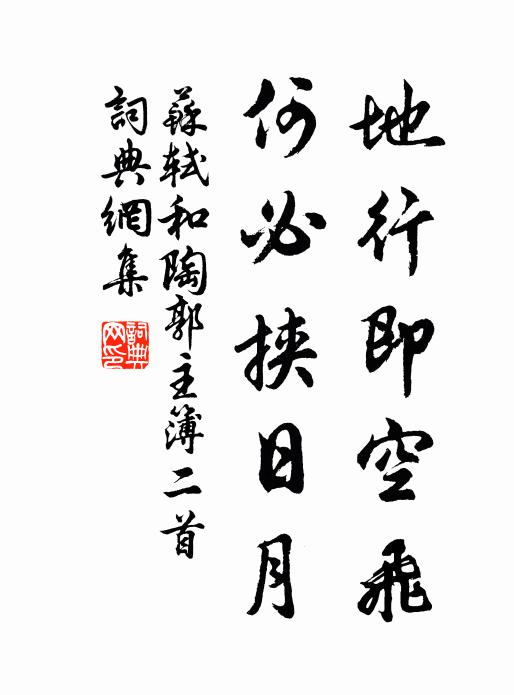 地行即空飛
何必挾日月
蘇軾和陶郭主簿二首
詞典網集
詞典網印